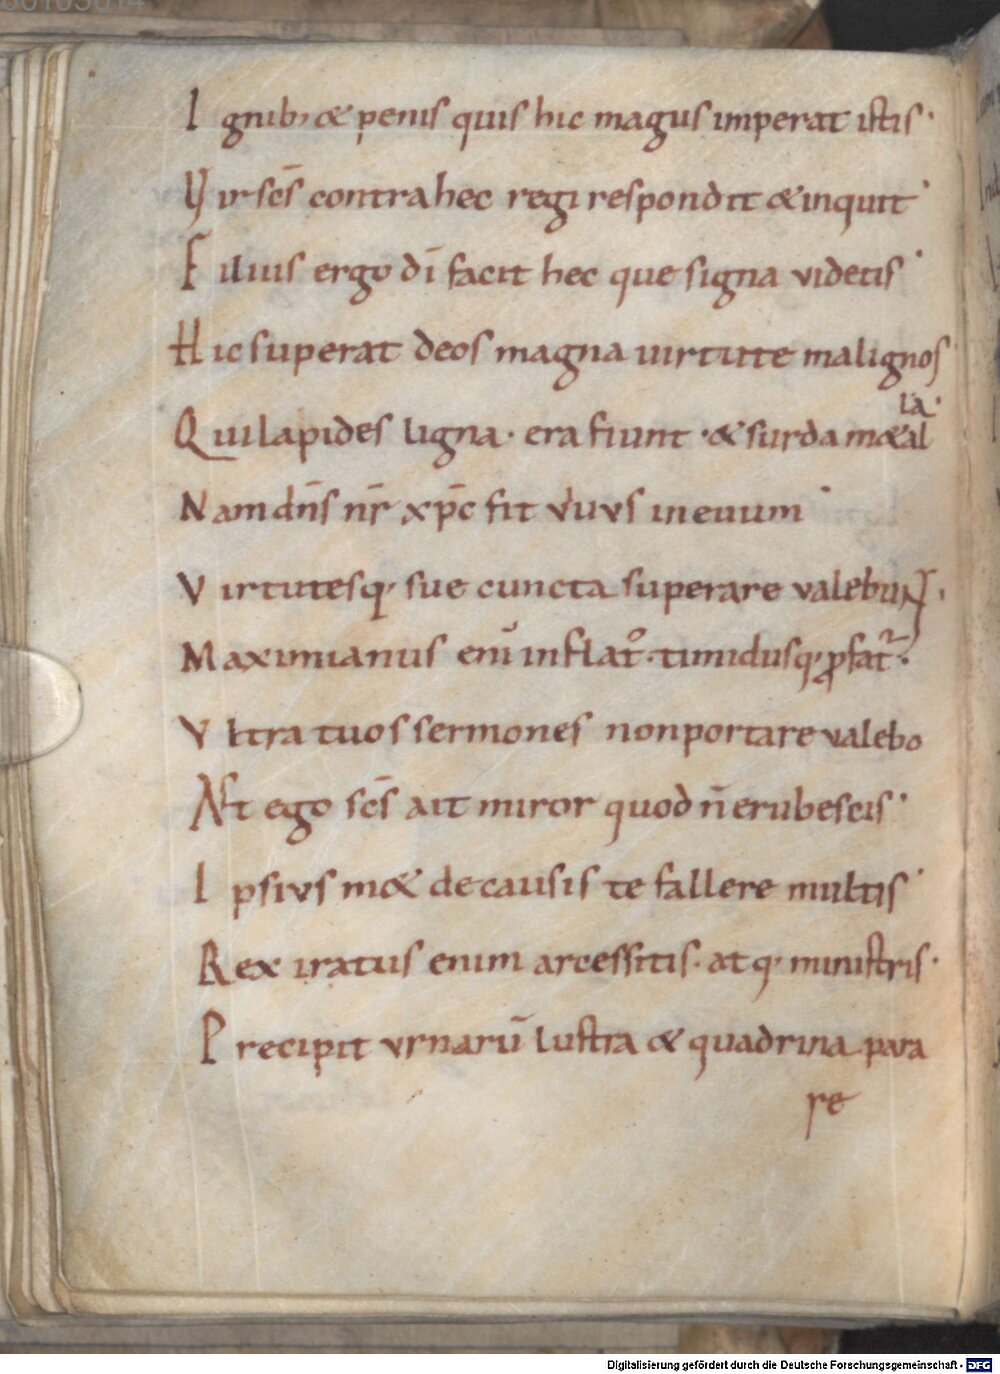 Ignib; & penis quis hic magus imperat istis·
Vir scs̄ contra hec regi respondit & inquit·
Filius ergo dī facit hec que signa videtis·
Hic superat deos magna uirtute malignos·
Qui lapides ligna· era fiunt ·& surda m&al
la·
Nam dn̄s nr̄ xp̄c fit vivvs in euum·
Virtutesq· sue cuncta superare valebunt·
Maximianus enī inflat᷒· timidusq· ꝓfat᷑·
Vltra tuos sermones non portare valebo
Ast ego scs̄ ait miror quod n̄ erubescis·
Ipsivs m& de causis te fallere multis·
Rex iratus enim arcessitis· atq· ministris·
Precipit vrnarū lustra & quadrina para
re
Digitalisierung gefördert durch die Deutsche Forschungsgemeinschaft · DFG